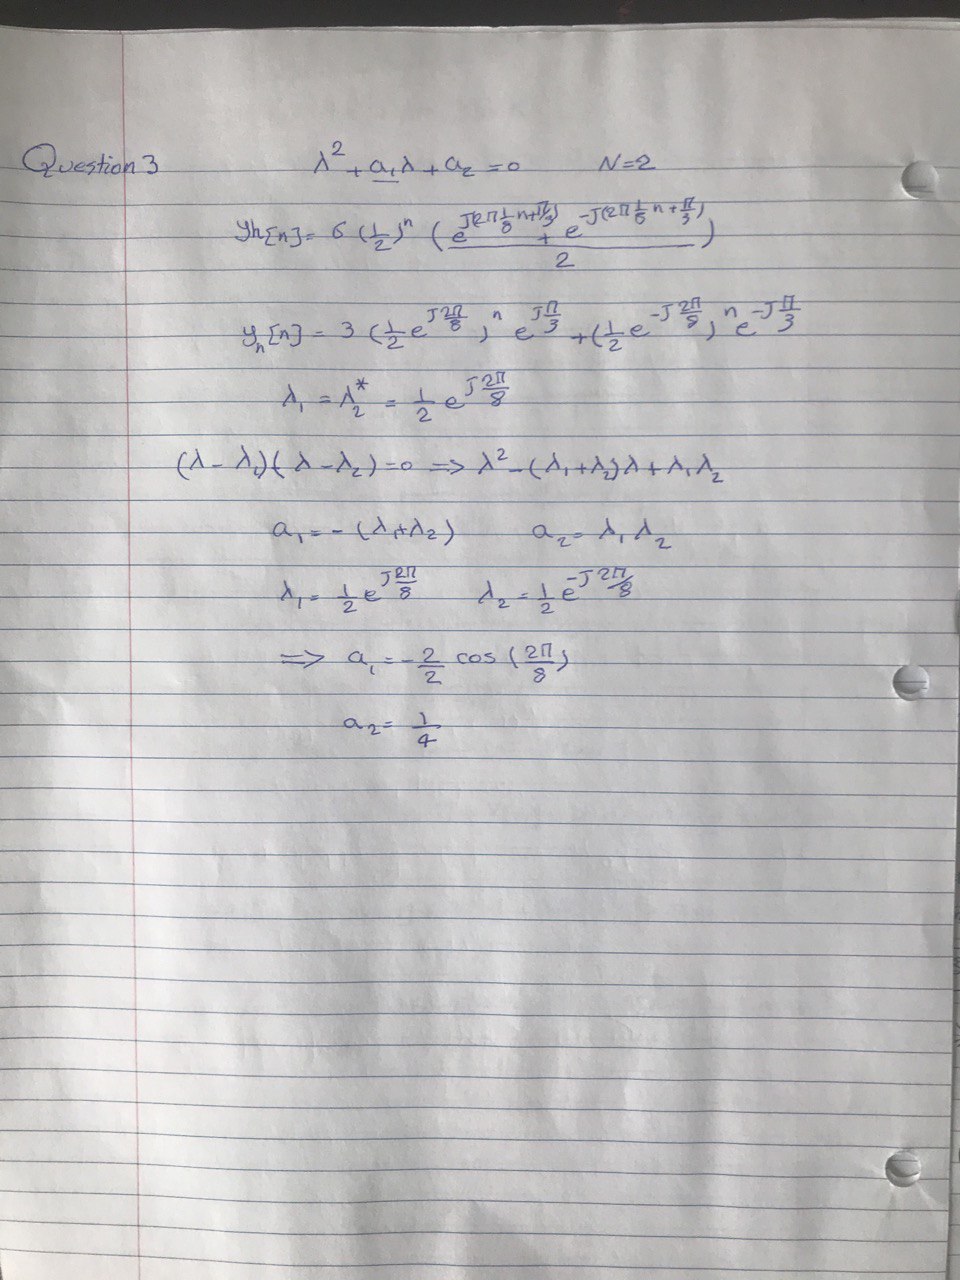 Question 3 λ² + a₁λ + a₂ = 0 N=2
yh[n] = 6 (1/2)ⁿ ( (e^{J(2π 1/8 n + π/3)} + e^{-J(2π 1/8 n + π/3)}) / 2 )
y_h[n] = 3 (1/2 e^{J 2π/8})ⁿ e^{J π/3} + (1/2 e^{-J 2π/8})ⁿ e^{-J π/3}
λ₁ = λ₂* = 1/2 e^{J 2π/8}
(λ - λ₁)(λ - λ₂) = 0 ⇒ λ² - (λ₁ + λ₂)λ + λ₁ λ₂
a₁ = - (λ₁ + λ₂) a₂ = λ₁ λ₂
λ₁ = 1/2 e^{J 2π/8} λ₂ = 1/2 e^{-J 2π/8}
⇒ a₁ = - 2/2 cos (2π/8)
a₂ = 1/4